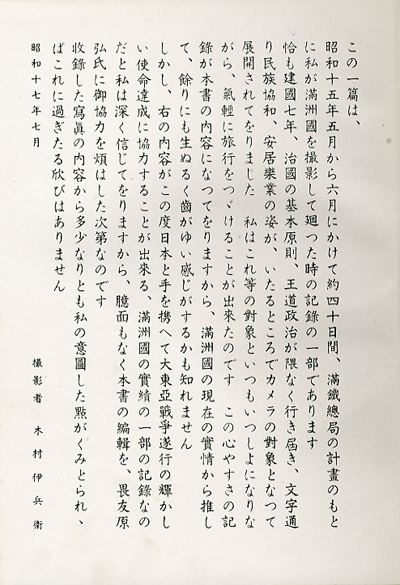 この一篇は、
昭和十五年五月から六月にかけて約四十日間、滿鐵總局の計畫のもと
に私が滿洲國を撮影して廻つた時の記錄の一部であります
恰も建國七年、治國の基本原則、王道政治が隈なく行き屆き、文字通
り民族協和、安居樂業の姿が、いたるところでカメラの對象となつて
展開されてをりました 私はこれ等の對象といつもいつしよになりな
がら、氣輕に旅行をつゞけることが出來たのです この心やすさの記
錄が本書の內容になつてをりますから、滿洲國の現在の實情から推し
て、餘りにも生ぬるく齒がゆい感じがするかも知れません
しかし、右の內容がこの度日本と手を携へて大東亞戰爭遂行の輝かし
い使命達成に協力することが出來る、滿洲國の實績の一部の記錄なの
だと私は深く信じてをりますから、臆面もなく本書の編輯を、畏友原
弘氏に御協力を煩はした次第なのです
收錄した寫眞の內容から多少なりとも私の意圖した點がくみとられ、
ばこれに過ぎたる欣びはありません
昭和十七年七月
撮影者 木村伊兵衞